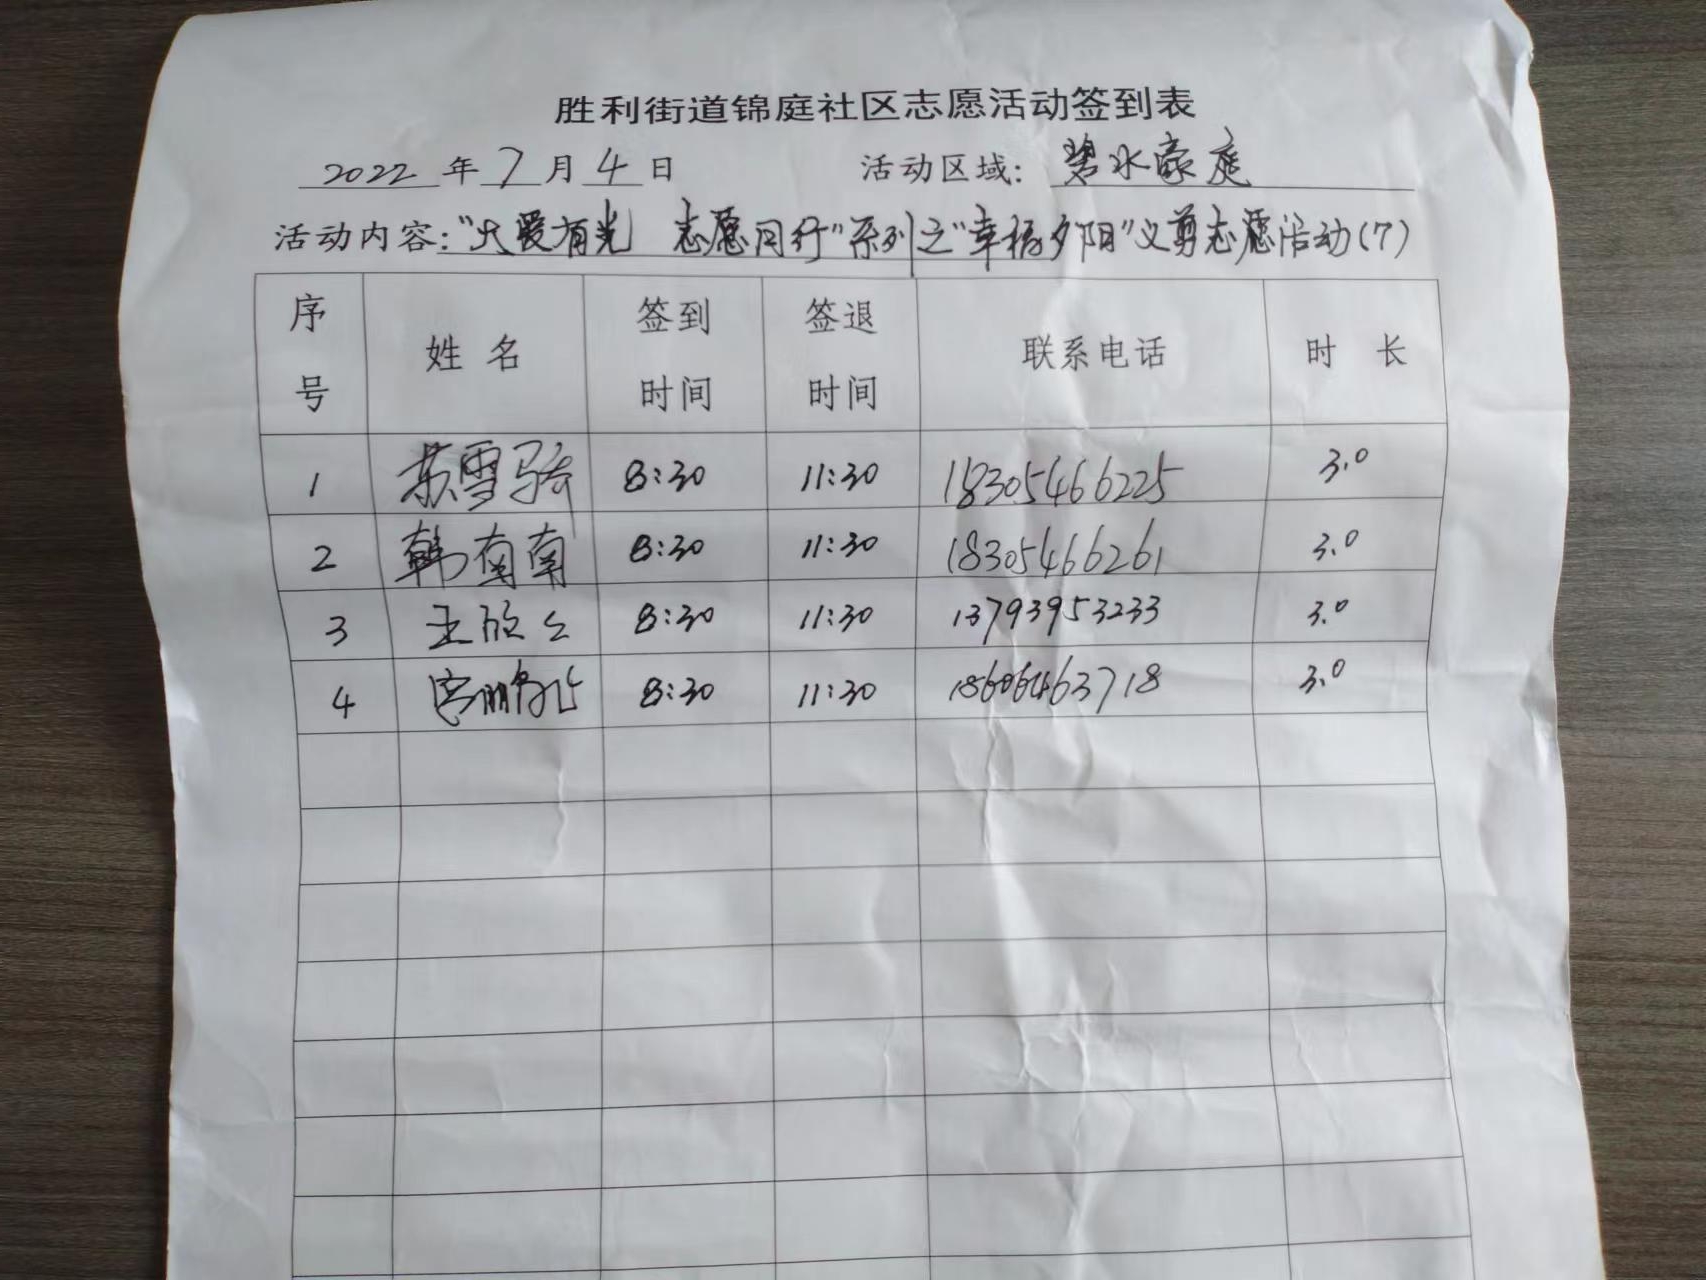 胜利街道锦庭社区志愿活动签到表
2022年7月4日 活动区域：碧水豪庭
活动内容："大爱有光 志愿同行"系列之"幸福夕阳"义剪志愿活动（7）
序号 姓名 签到时间 签退时间 联系电话 时长
1 苏雪骑 8:30 11:30 18305466225 3.0
2 韩南南 8:30 11:30 18305466261 3.0
3 王欣 8:30 11:30 13793953233 3.0
4 宫鹏 8:30 11:30 18606463718 3.0